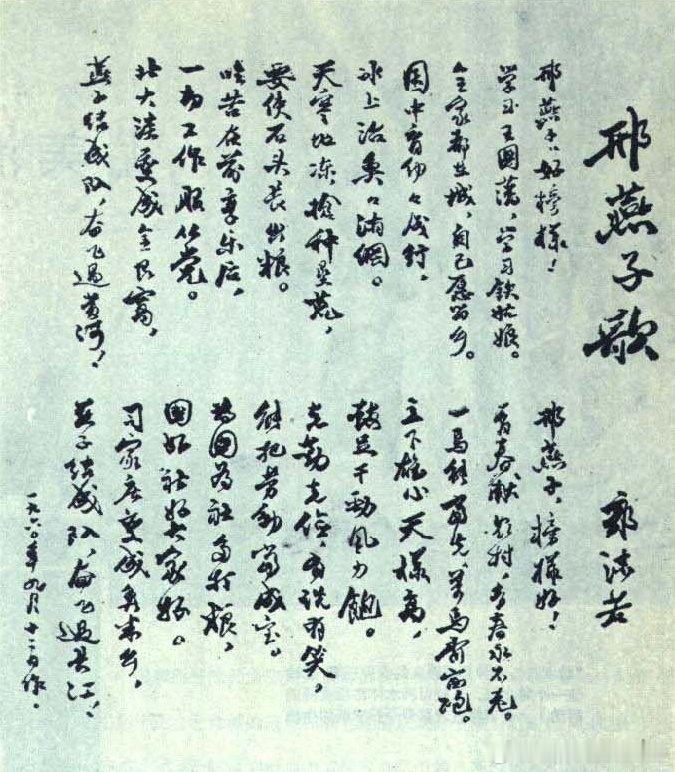 邢燕子歌
郭沫若
邢燕子，好榜样！
学习王国藩，学习铁姑娘。
全家都在城，自己愿留乡。
园中育幼々成行，
冰上治鱼々满網。
天寒地冻，抢种垦荒，
要使石头长出粮。
吃苦在前享乐后，
一切工作服从党。
北大洼变成金银窝，
燕子结成队，奋飞过黄河！
邢燕子，榜样好！
青春献农村，青春永不老。
一马能当先，万马齐奔跑。
立下雄心天样高，
鼓足干劲风力饱。
克勤克俭，有说有笑，
能把劳动当成宝。
为国为社多打粮，
国好社好大家好。
司家庄变成鱼米乡，
燕子结成队，奋飞过长江！
一九六〇年九月十二日作。